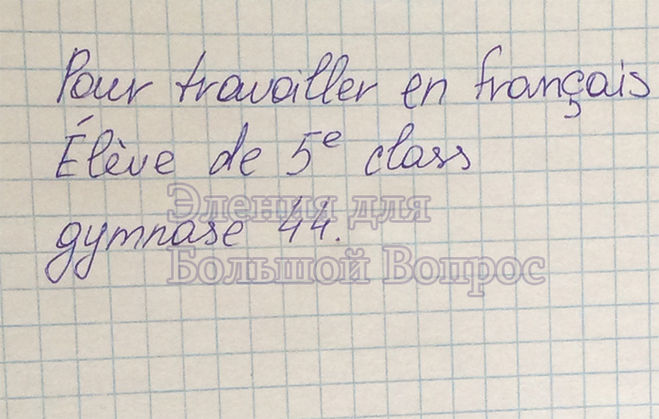 Pour travailler en français
Élève de 5e class
Эления для
gymnase 44.
Большой Вопрос